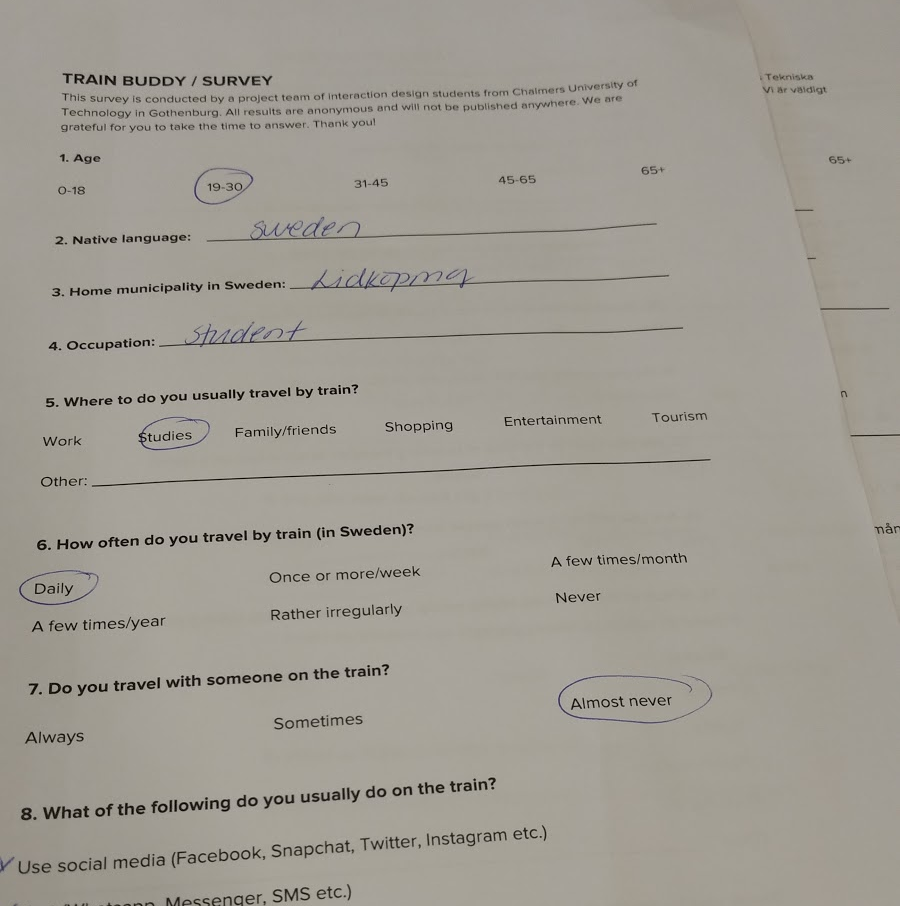 TRAIN BUDDY / SURVEY
This survey is conducted by a project team of interaction design students from Chalmers University of
Technology in Gothenburg. All results are anonymous and will not be published anywhere. We are
grateful for you to take the time to answer. Thank you!
1. Age
0-18 19-30 31-45 45-65 65+
2. Native language: sweden
3. Home municipality in Sweden: Lidkoping
4. Occupation: Student
5. Where to do you usually travel by train?
Work Studies Family/friends Shopping Entertainment Tourism
Other:
6. How often do you travel by train (in Sweden)?
Daily Once or more/week A few times/month
A few times/year Rather irregularly Never
7. Do you travel with someone on the train?
Always Sometimes Almost never
8. What of the following do you usually do on the train?
Use social media (Facebook, Snapchat, Twitter, Instagram etc.)
Messenger, SMS etc.)
Tekniska
Vi är väldigt
65+